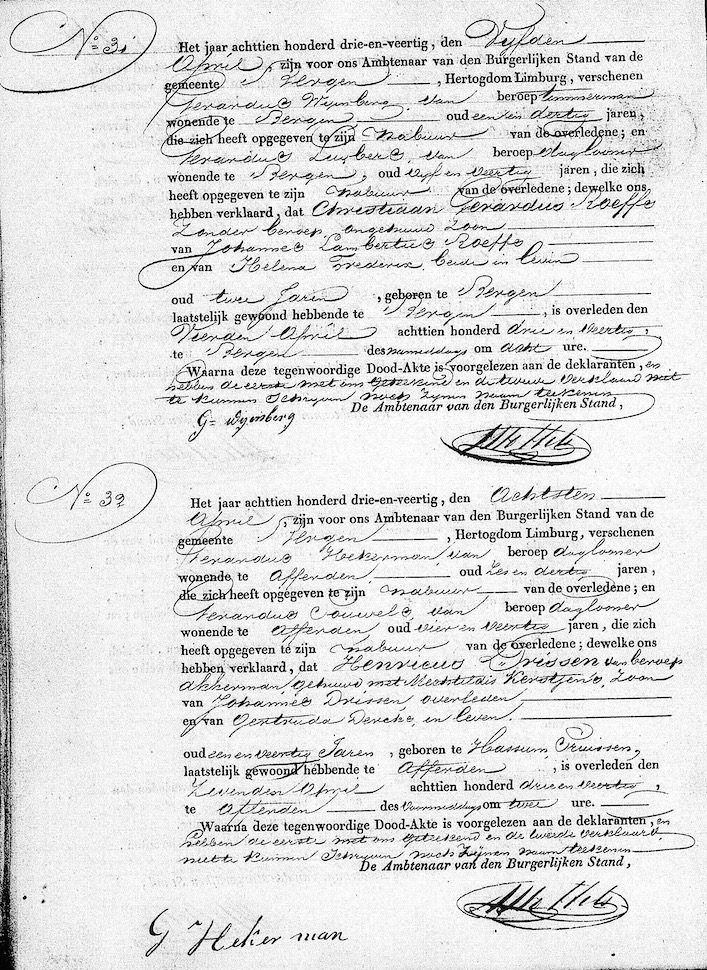 N° 31
Het jaar achttien honderd drie-en-veertig, den Vyfden
April, zijn voor ons Ambtenaar van den Burgerlijken Stand van de
gemeente Bergen, Hertogdom Limburg, verschenen
Gerardus Wymberg, van beroep timmerman
wonende te Bergen oud een en dertig jaren,
die zich heeft opgegeven te zijn nabuur van de overledene; en
Gerardus Luybers, van beroep daglooner
wonende te Bergen, oud vyf en veertig jaren, die zich
heeft opgegeven te zijn nabuur van de overledene; dewelke ons
hebben verklaard, dat Christiaan Gerardus Roeffs
Zonder beroep, ongehuwd Zoon
van Johannes Lambertus Roeffs
en van Helena Frederix, beide in leven
oud twee Jaren, geboren te Bergen
laatstelijk gewoond hebbende te Bergen, is overleden den
Vierden April achttien honderd drie en veertig,
te Bergen des namiddags om acht ure.
Waarna deze tegenwoordige Dood-Akte is voorgelezen aan de deklaranten, en
hebben de eerste met ons getekend en de tweede verklaard niet
te kunnen Schryven noch Zynen naam teekenen
De Ambtenaar van den Burgerlijken Stand,
G= Wymberg
N° 32
Het jaar achttien honderd drie-en-veertig, den Achtsten
April, zijn voor ons Ambtenaar van den Burgerlijken Stand van de
gemeente Bergen, Hertogdom Limburg, verschenen
Gerardus Hekerman, van beroep daglooner
wonende te Afferden, oud Zes en dertig jaren,
die zich heeft opgegeven te zijn nabuur van de overledene; en
Gerardus Couwels, van beroep daglooner
wonende te Afferden oud vier en veertig jaren, die zich
heeft opgegeven te zijn nabuur van de overledene; dewelke ons
hebben verklaard, dat Henricus Drissen van beroep
akkerman gehuwd met Mechtildis Kerstjens, Zoon
van Johannes Drissen overleden
en van Gertruda Dercks, in leven.
oud een en veertig Jaren, geboren te Hassum, Pruissen,
laatstelijk gewoond hebbende te Afferden, is overleden den
Zevenden April achttien honderd drie en veertig,
te Afferden des voormiddags om twee ure.
Waarna deze tegenwoordige Dood-Akte is voorgelezen aan de deklaranten, en
hebben de eerste met ons getekend en de tweede verklaard
niet te kunnen Schryven noch Zynen naam teekenen
De Ambtenaar van den Burgerlijken Stand,
G Hekerman